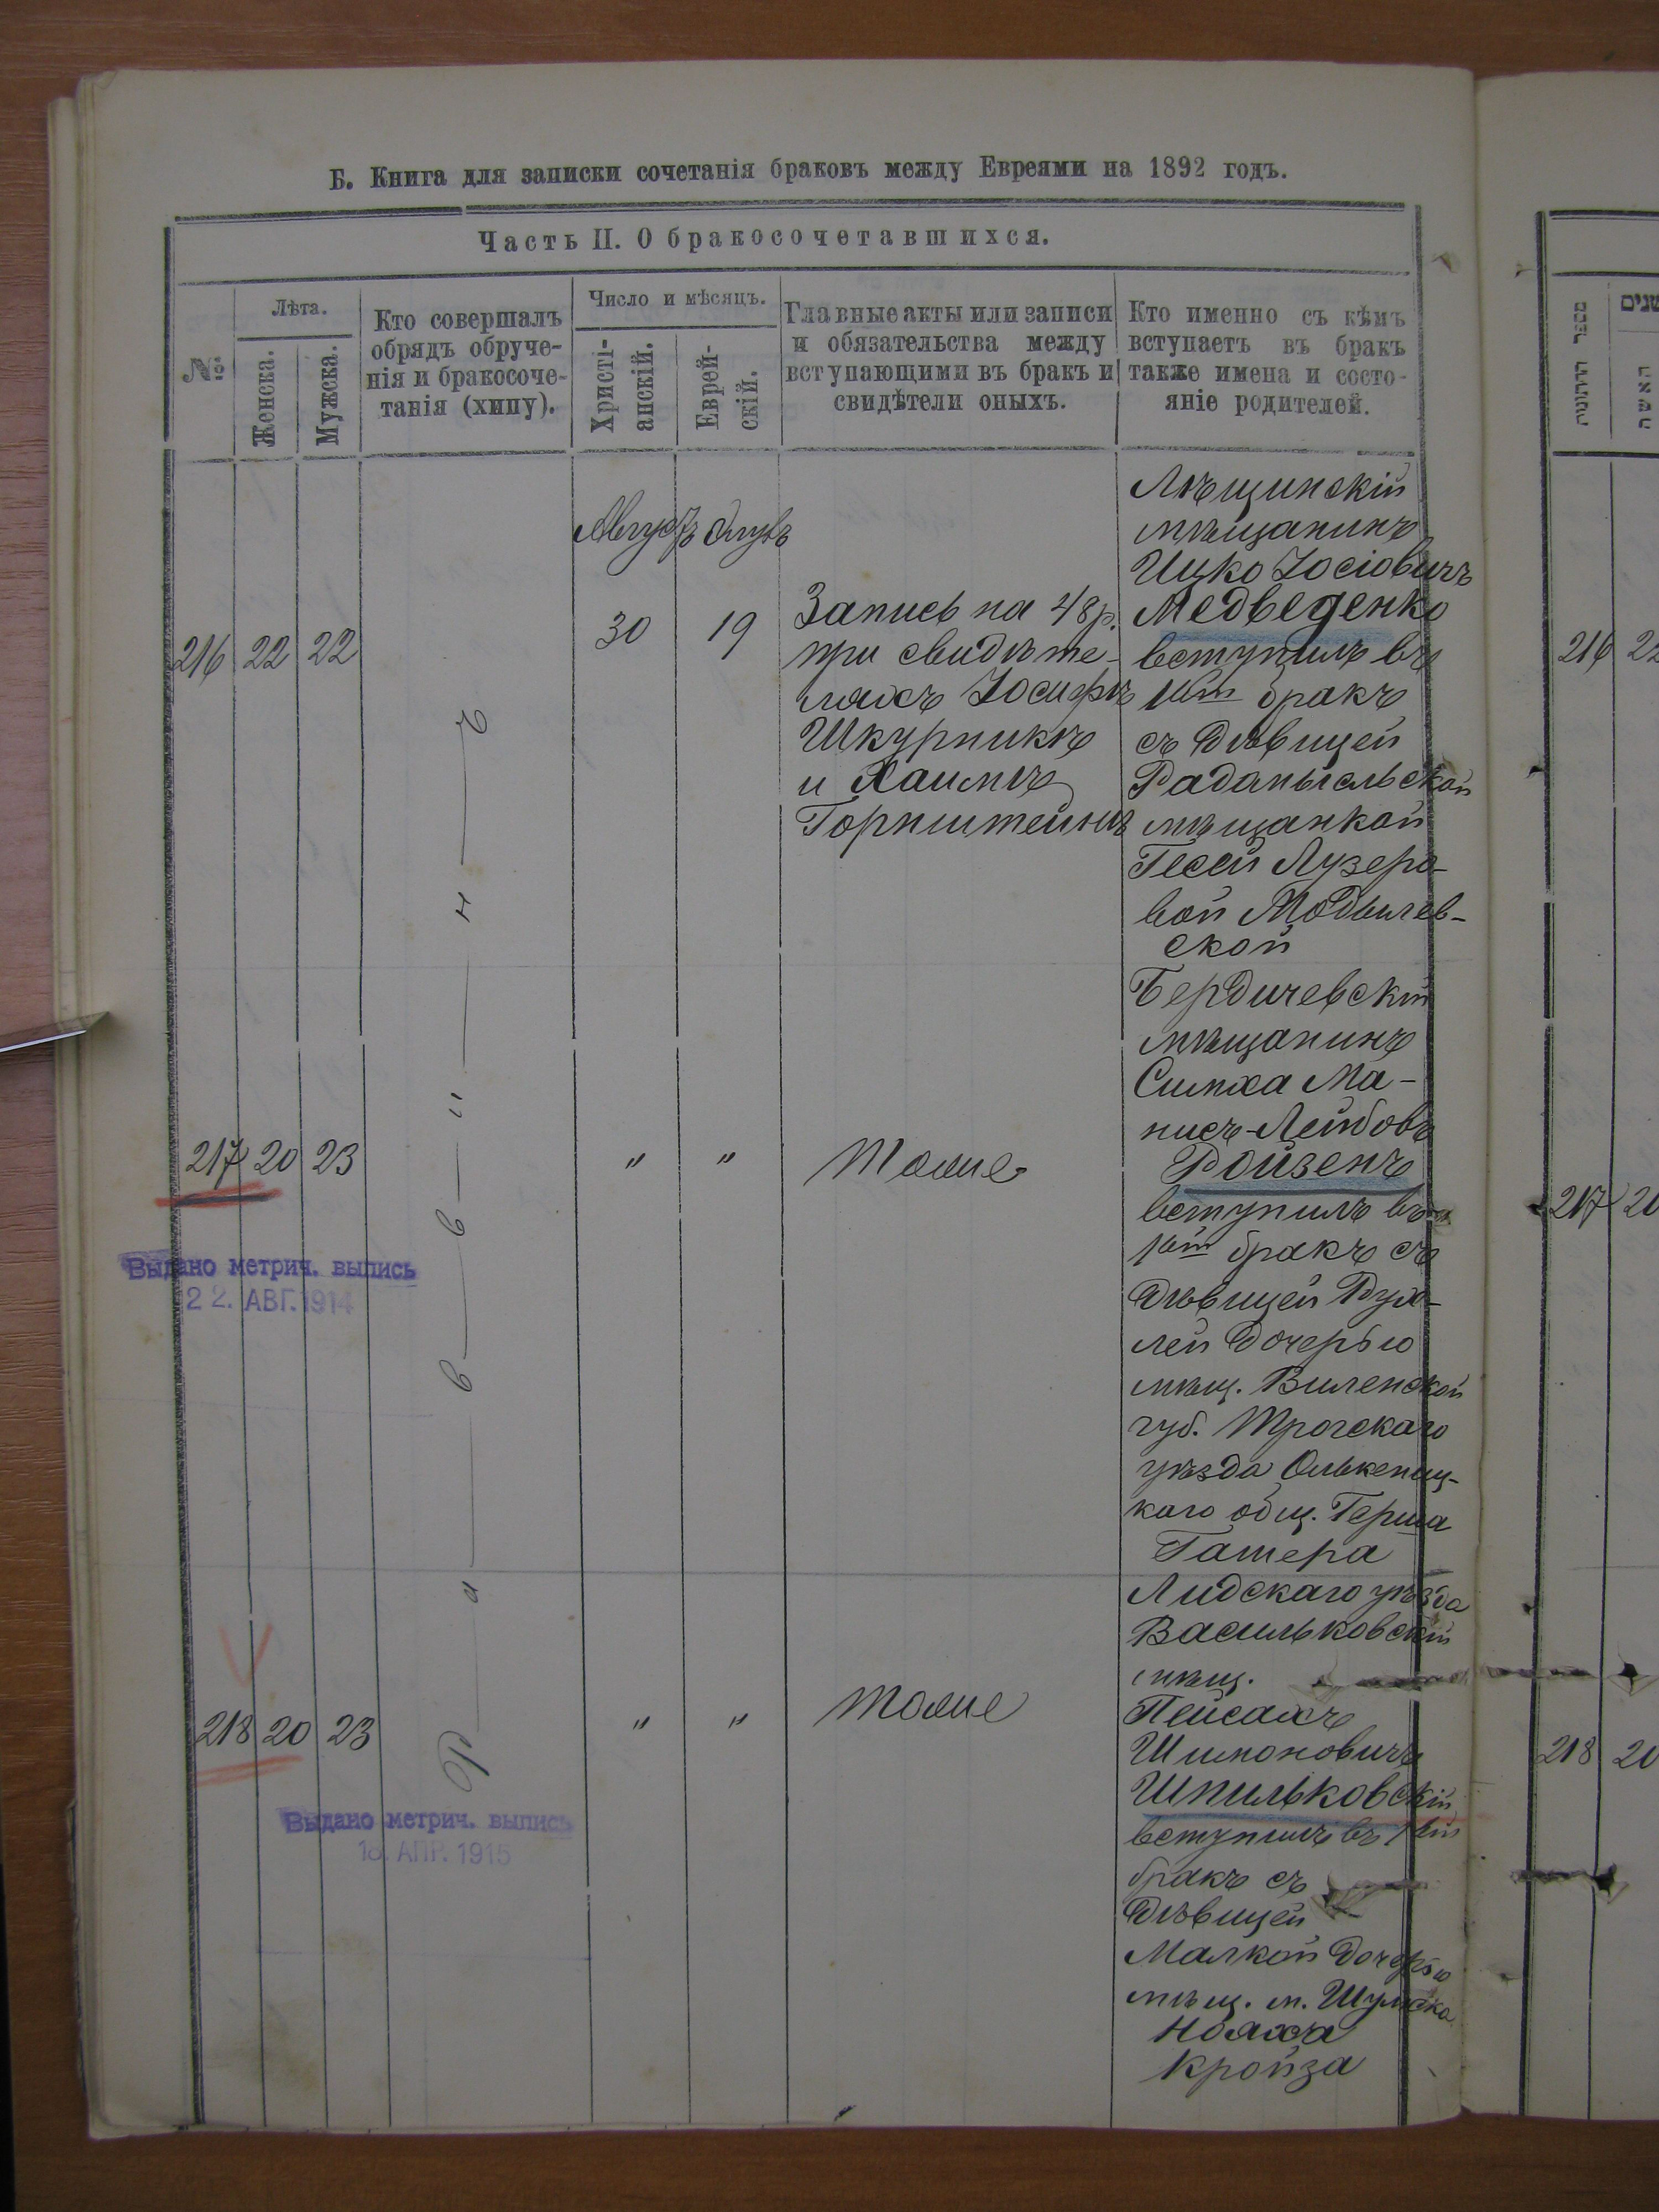 Б. Книга для записки сочетанія браковъ между Евреями на 1892 годъ.
Часть II. О бракосочетавшихся.
№
Лѣта.
Женска.
Мужска.
Кто совершалъ
обрядъ обруче-
нія и бракосоче-
танія (хипу).
Число и мѣсяцъ.
Христі-
анскій.
Еврей-
скій.
Главные акты или записи
и обязательства между
вступающими въ бракъ и
свидѣтели оныхъ.
Кто именно съ кѣмъ
вступаетъ въ бракъ
также имена и состо-
яніе родителей.
Августъ Элулъ
216 22 22
Р а в в и н ъ
30 19
Запись на 48 р.
при свидѣте-
ляхъ Іосифѣ
Шкурникѣ
и Хаимѣ
Горнштейнѣ
мѣщанинъ
Ицко Іосіовичъ
Медведенко
вступилъ въ
1ый бракъ
съ дѣвицей
Радомысльской
мѣщанкой
Песей Лузеро-
вой
ской
217 20 23
" "
Тоже
Бердичевскій
мѣщанинъ
Симха Ма-
нисъ-Лейбовъ
Ройзенъ
вступилъ въ
1ый бракъ съ
дѣвицей Рух-
лей дочерью
мѣщ. Виленской
губ. Трокскаго
уѣзда Олькениц-
каго общ. Герша
Гатера
Выдано метрич. выпись
22. АВГ. 1914
218 20 23
" "
тоже
Лидскаго уѣзда
Васильковскій
мѣщ.
Пейсахъ
Шимоновичъ
Шпильковскій
вступилъ въ 1ый
бракъ съ
дѣвицей
Малкой дочерью
мѣщ. м. Шумска
Нояха
Кройза
Выдано метрич. выпись
18. АПР. 1915
שנים
האשה
216 22
217 20
218 20